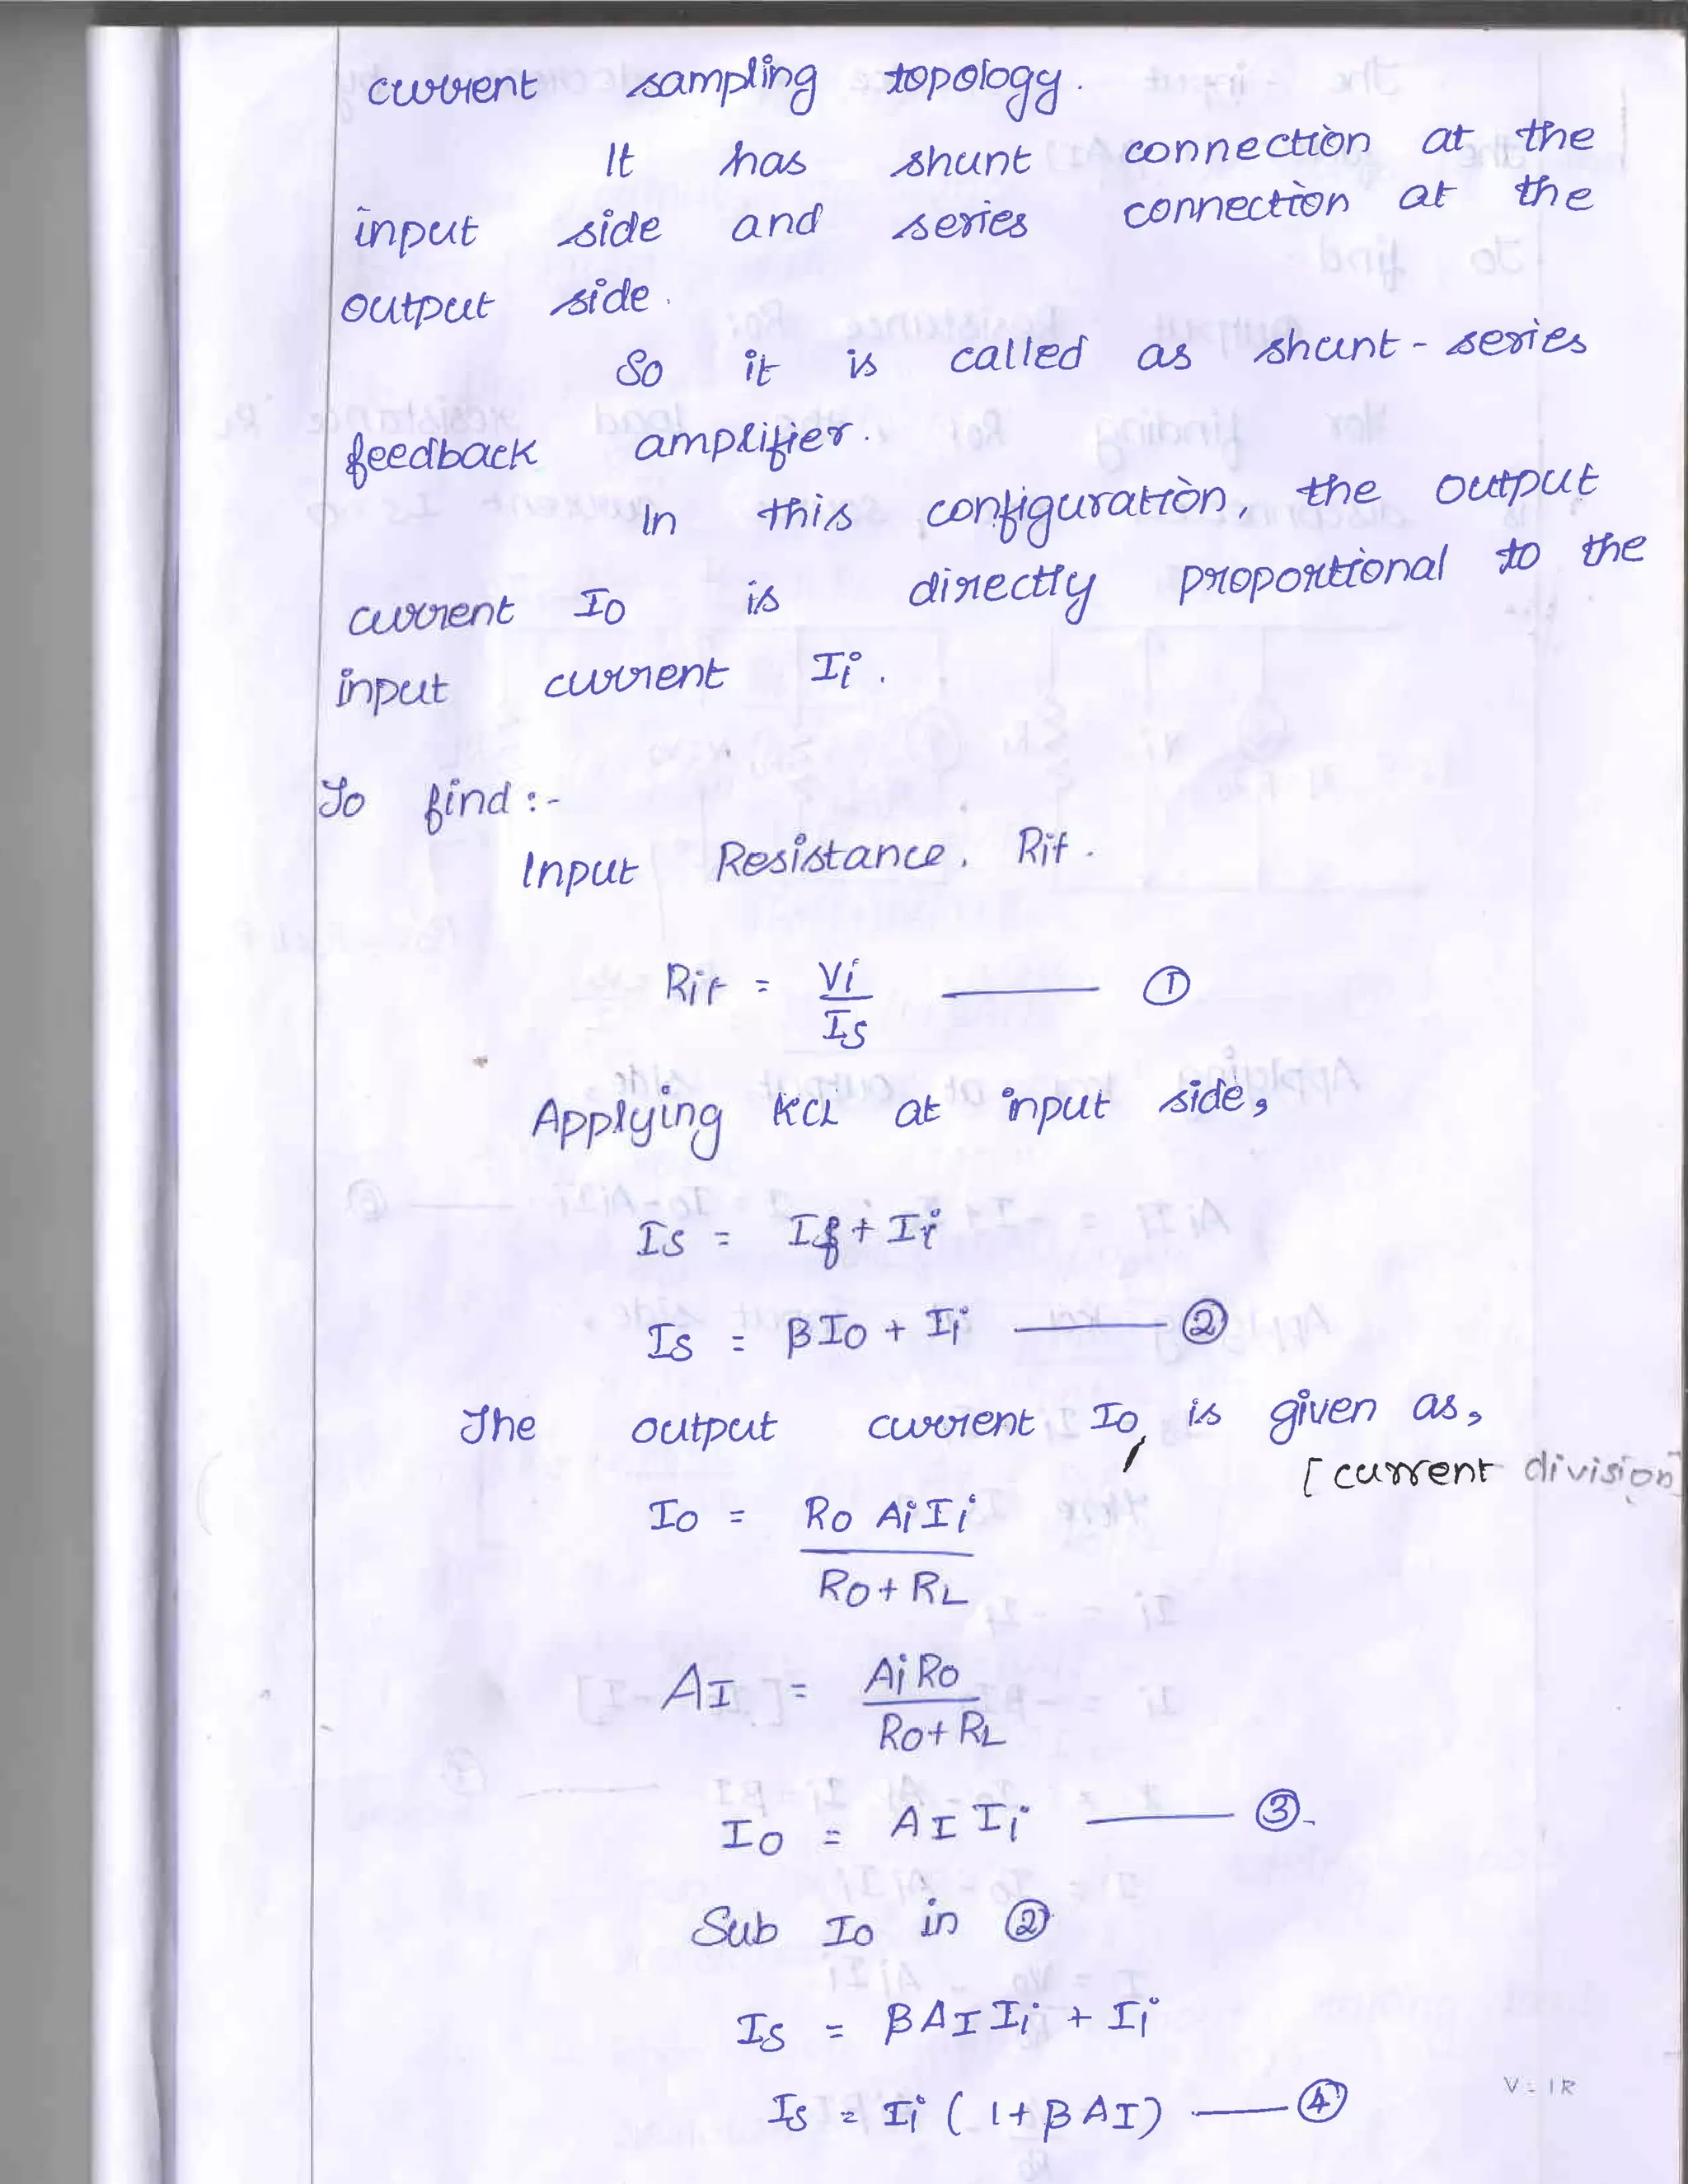 current sampling topology.
It has shunt connection at the
input side and series connection at the
output side.
So it is called as shunt-series
feedback amplifier.
In this configuration, the output
current Io is directly proportional to the
input current Ii.
To find :-
Input Resistance. Rif.
Rif = Vi / Is —— ①
Applying KCL at input side,
Is = If + Ii
Is = βIo + Ii —— ②
The output current Io, is given as,
[current division]
Io = Ro Ai Ii / Ro + RL
AI = Ai Ro / Ro + RL
Io = AI Ii —— ③.
Sub Io in ②
Is = βAI Ii + Ii
Is = Ii (1 + βAI) —— ④
V = IR